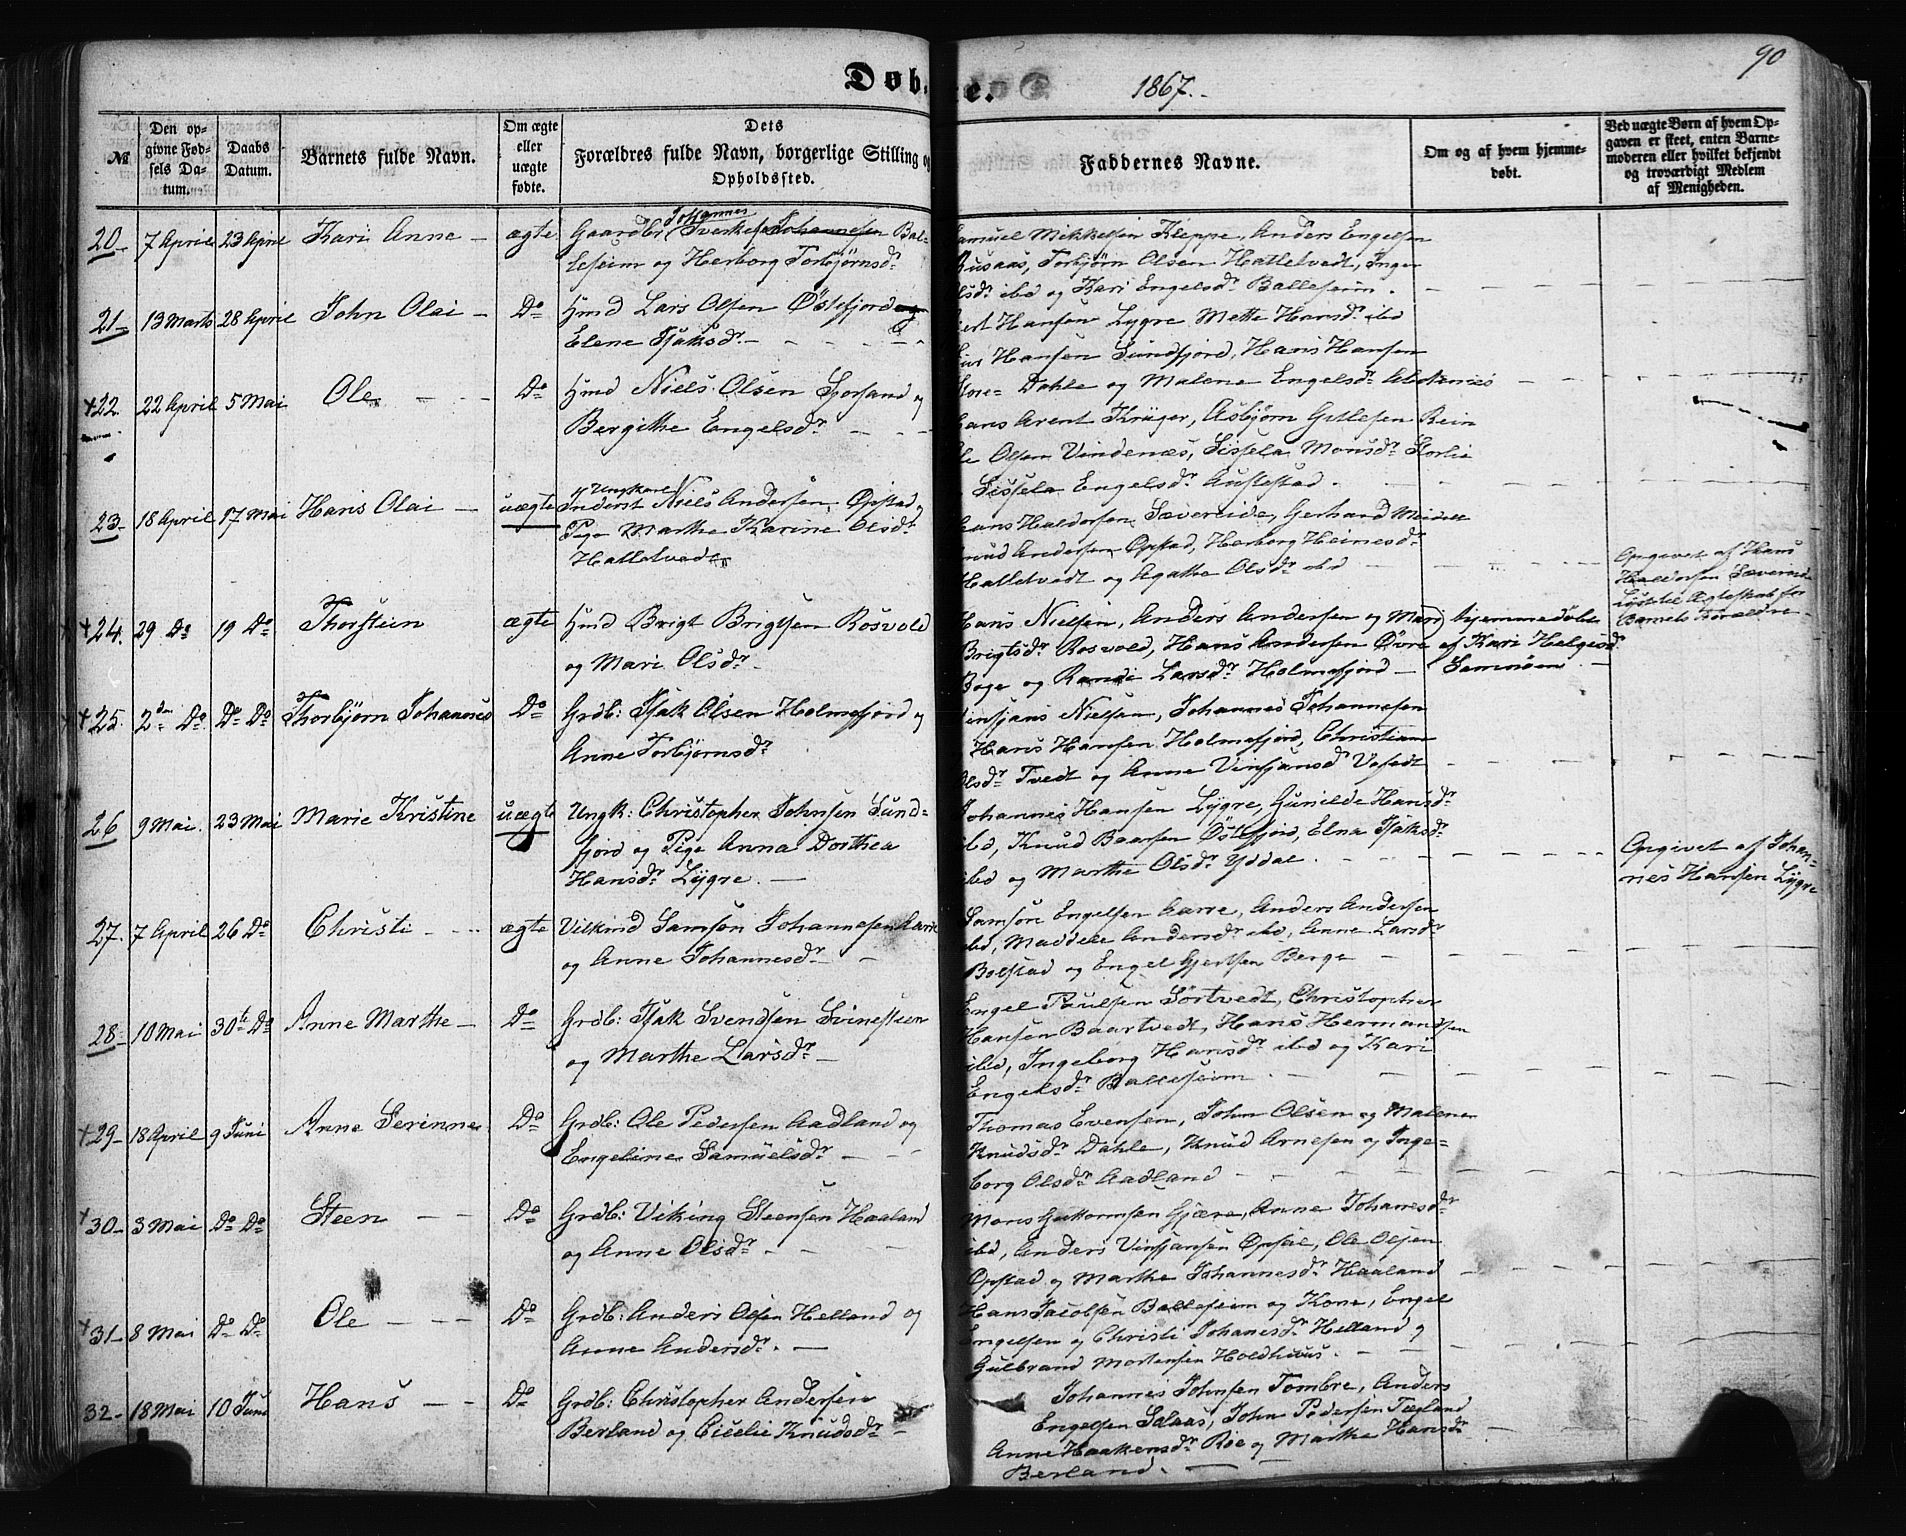 90
Døbte. 1867.
№
Den opgivne Fødsels Datum.
Daabs Datum.
Barnets fulde Navn.
Om ægte eller uægte fødte.
Dets Forældres fulde Navn, borgerlige Stilling og Opholdssted.
Faddernes Navne.
Om og af hvem hjemmedøbt.
Ved uægte Børn af hvem Opgaven er skeet, enten Barnemoderen eller hvilket bekjendt og troværdigt Medlem af Menigheden.
20 7 April 23 April Kari Anne ægte
Gaardbr. Sverke Johannesen Johannes Bal-
leseim og Herborg Torbjørnsdr.
Samuel Mikkelsen Kleppe, Anders Engelsen
Busaas, Torbjørn Olsen Hatletvedt, Inger
Olsdr. ibd og Kari Engelsdr. Balleseim.
21 13 Marts 28 April John Olai Do
Hmd Lars Olsen Østefjord og
Elene Isaksdr.
Hansen Lygre Mette Hansdr. ibd
Hansen Sundfjord, Hans Hansen
Dahle og Malene Engelsdr.
+22 22 April 5 Mai Ole Do
Hmd Niels Olsen og
Bergithe Engelsdr.
Hans Arent Krüger, Asbjørn Gitlesen Rein
Ole Olsen Vindenæs, Sissela Monsdr. Storlie
Sissela Engelsdr. Austestad.
23 18 April 17 Mai Hans Olai uægte
Ungkarl
Inderst Niels Andersen Opstad og
Pige Marthe Karine Olsdr.
Hatletvedt
Hans Haldorsen Sævereide, Gerhard Meidell
Knud Andersen Opstad, Herborg Heinesdr.
Hatletvedt og Agathe Olsdr. ibd
Opgivet af Hans
Haldorsen Sævereide
Lyst til Ægteskab for
Barnets Forældre
+24. 29 Do 19 Do Thorstein ægte
Hmd Brigt Brigtsen Rosvold
og Mari Olsdr.
Hans Nielsen, Anders Andersen og Mari
Brigtsdr. Rosvold, Hans Andersen Øvre
Boge og Randi Larsdr. Holmefjord
hjemmedøbt
af Kari Helgesdr.
Samnøen
+25. 2den Do. Do Do Thorbjørn Johannes Do
Grdb: Isak Olsen Holmefjord og
Anne Torbjørnsdr.
Vinsjans Nielsen, Johannes Johannesen
Hans Hansen Holmefjord, Christiane
Olsdr. Tvedt og Anne Vinsjansdr.
26 9 Mai. 23 Mai Marie Kristine uægte
Ungk: Christopher Johnsen Sund-
fjord og Pige Anna Dorthea
Hansdr. Lygre.
Johannes Hansen Lygre, Gunilde Hansdr.
ibd, Knud Baarsen Østefjord, Elna Isaksdr.
ibd og Marthe Olsdr. Yddal.
Opgivet af Johan-
nes Hansen Lygre
27. 7 April 26 Do Christi ægte
Vilkind Samson Johannesen Aarre
og Anne Johannesdr.
Samson Engelsen Aarre, Anders Andersen
ibd, Maddele Andersdr. ibd, Anne Larsdr.
Bolstad og Engel Gjertsen Berge
28 10 Mai 30te Do Anne Marthe Do
Grdb: Isak Svendsen Svinestien
og Marthe Larsdr.
Engel Paulsen Sørtvedt, Christopher
Hansen Baartvedt, Hans Hermandsen
ibd, Ingeborg Hansdr. ibd og Kari
Engelsdr. Balleseim
+29 18 April 9 Juni Anne Serinne Do
Grdb: Ole Pedersen Aadland og
Engeline Samuelsdr.
Thomas Evensen, John Olsen og Malene
Knudsdr. Dahle, Knud Arnesen og Inge-
borg Olsdr. Aadland
+30 3 Mai Do Do Steen Do
Grdb: Viking Steensen Haaland
og Anne Olsdr.
Mons Guttormsen Gjære, Anne Johanesdr.
ibd, Anders Vinsjansen Opsal, Ole Olsen
Opstad og Marthe Johannesdr. Haaland
+31 8 Mai Do Do Ole Do
Grdb: Anders Olsen Helland og
Anne Andersdr.
Hans Jacobsen Balleseim og Kone, Engel
Engelsen og Christi Johanesdr. Helland og
Gulbrand Mortensen Holdhuus.
32 18 Mai 10 Juni Hans Do
Grdb: Christopher Andersen
Berland og Cicelie Knudsdr.
Johannes Johnsen Tombre, Anders
Engelsen, John Pedersen Tægland
Anne Haakensdr. Røe og Marthe Hansdr.
Berland.